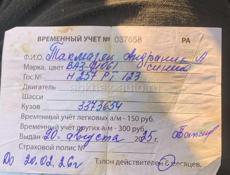 ВРЕМЕННЫЙ УЧЕТ № 037658 РА
Ф.И.О. Такмазян Андраник А
Марка, цвет ВАЗ 21061 синий
Гос.№ Н 257 РГ 123
Двигатель
Шасси
Кузов 3373654
Временный учёт легковых а/м - 150 руб.
Временный учёт других а/м - 300 руб.
Выдан 20 августа 2025г.
Страховой полис №
До 20.02.26г Талон действителен 6 месяцев.